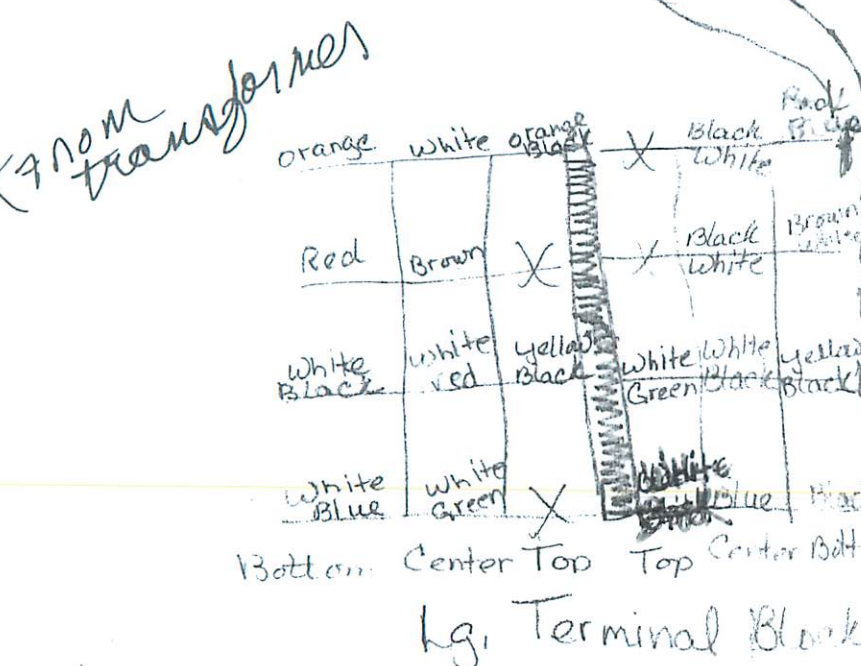 From
transformer
orange White Orange Black X Black White
Red Brown X X Black White Brown White
White Black White red Yellow Black White Green White Black Yellow Black
White Blue White Green X Blue
Bottom Center Top Top Center Bott
Lg. Terminal Block